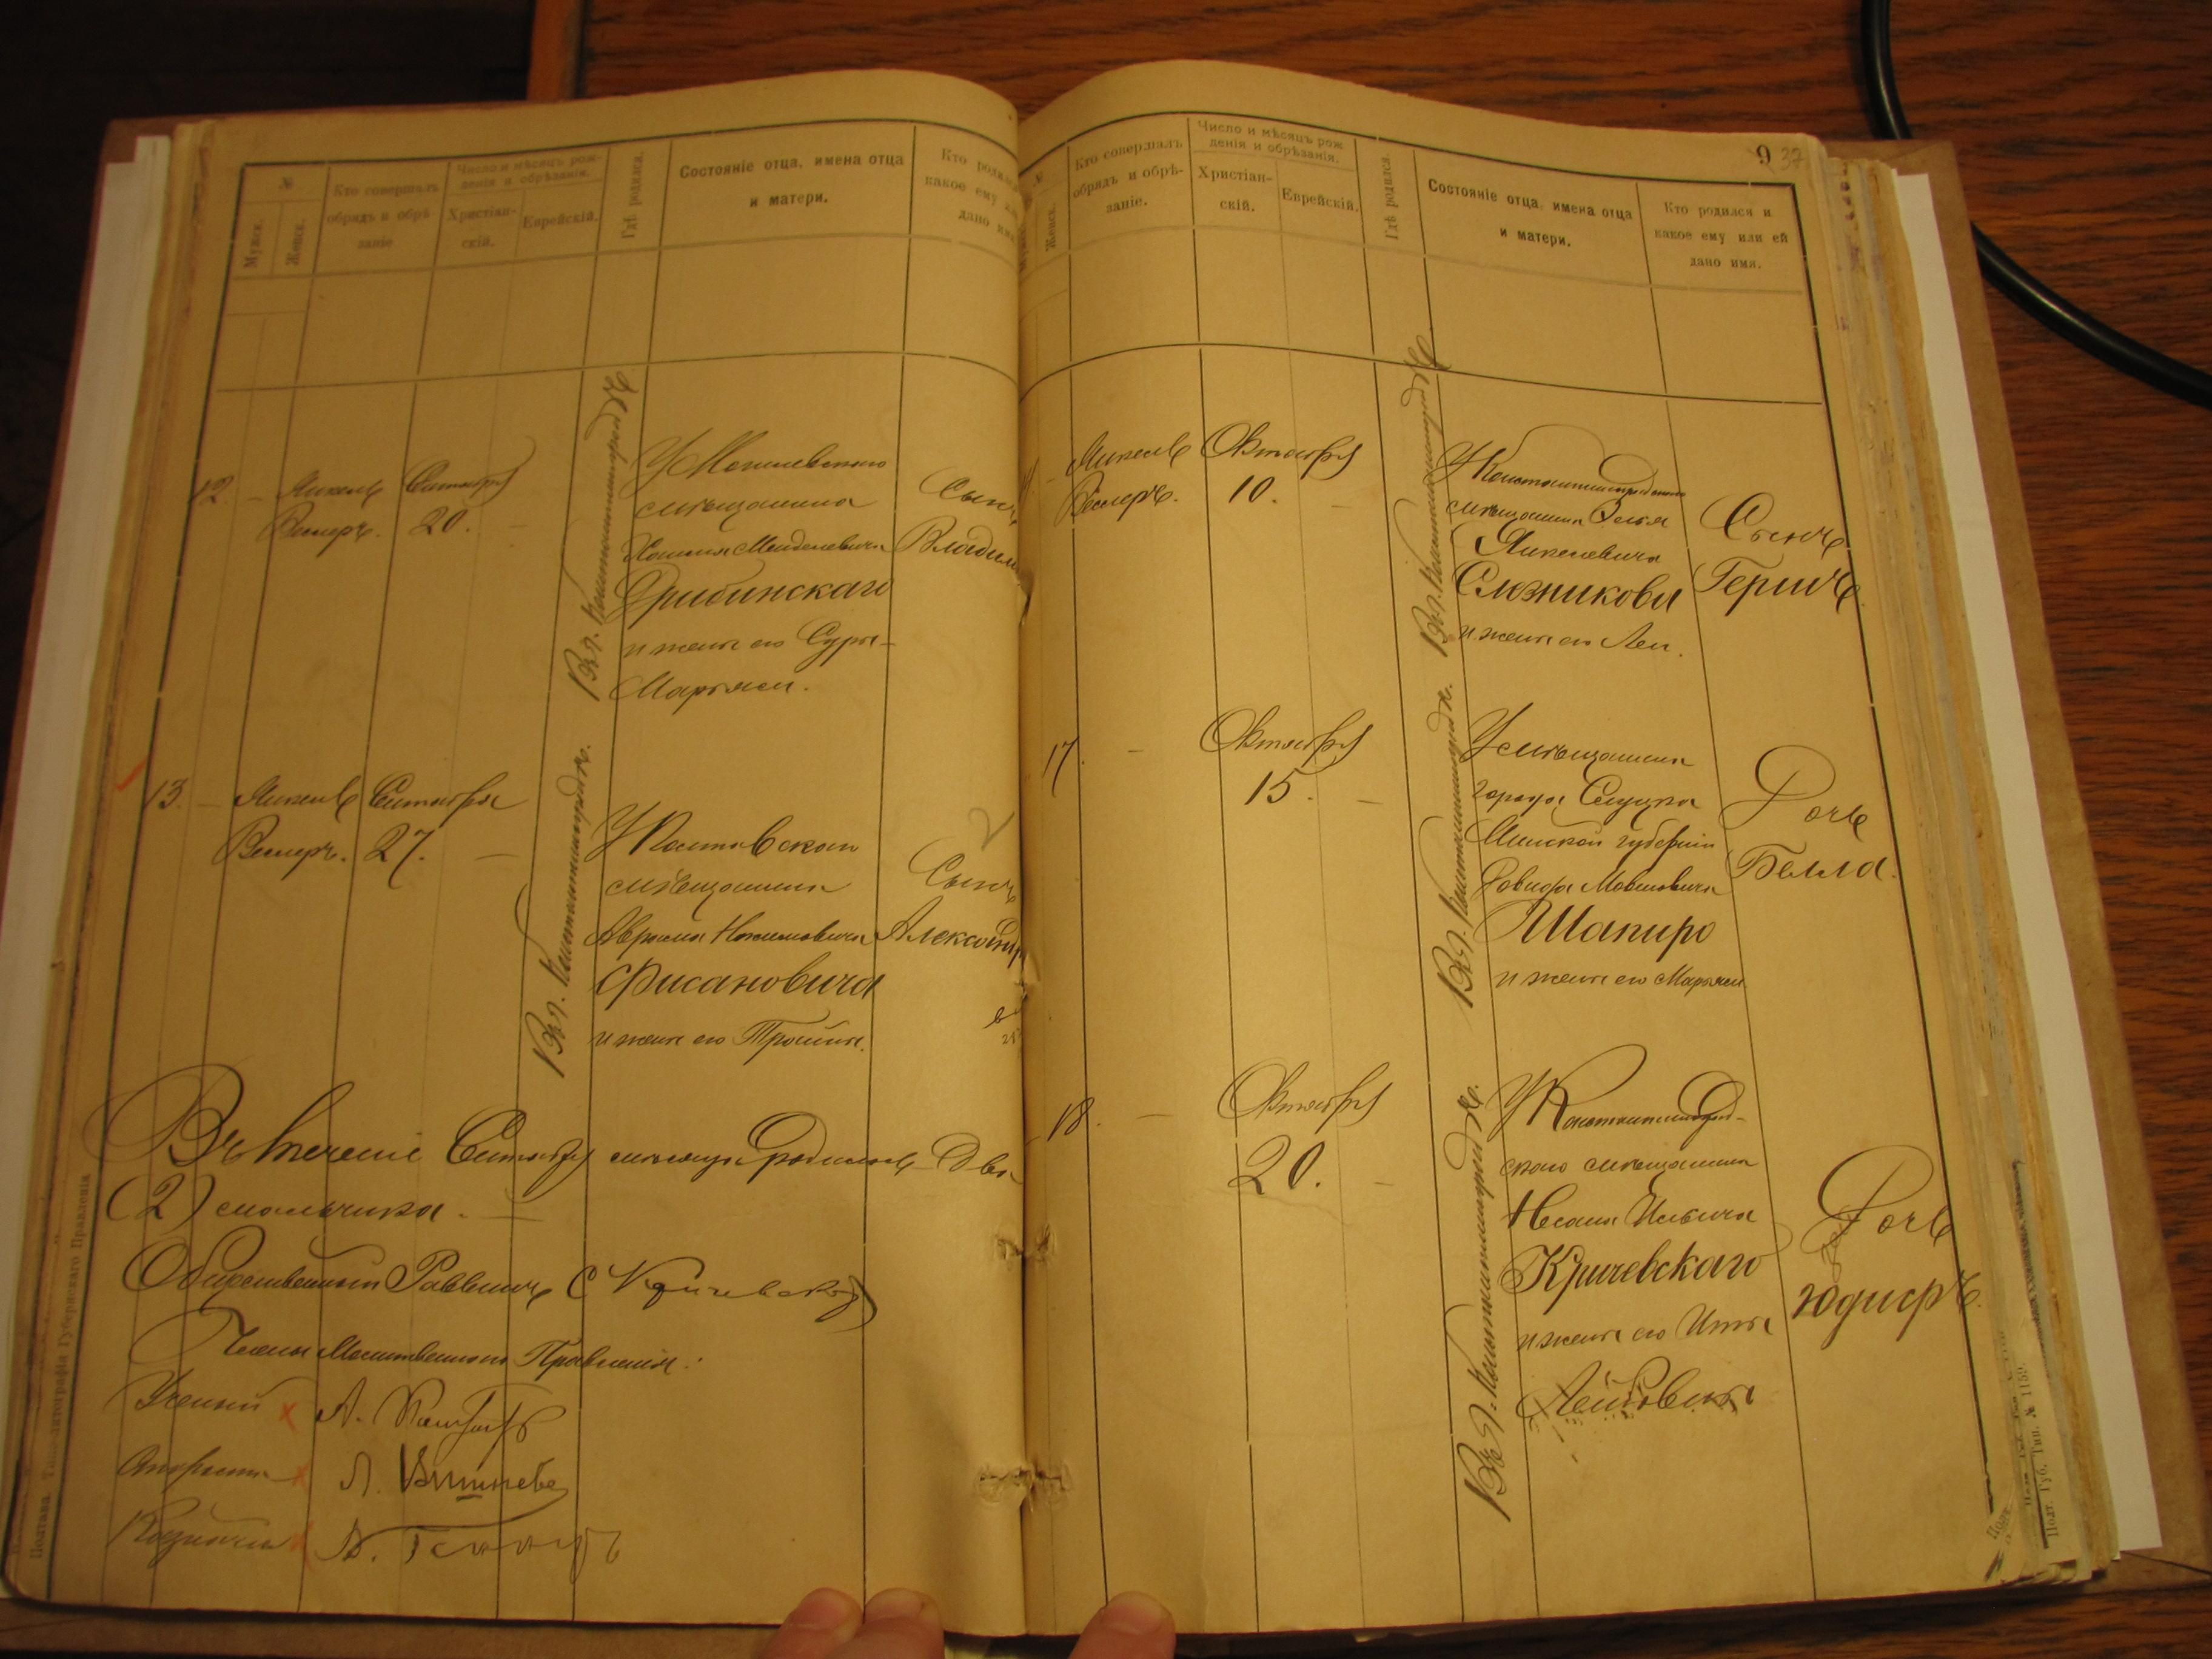 №
Мужск.
Женск.
Кто совершалъ
обрядъ и обрѣ-
заніе
Число и мѣсяцъ рож-
денія и обрѣзанія.
Христіан-
скій.
Еврейскій.
Гдѣ родился.
Состояніе отца, имена отца
и матери.
Кто родил
какое ему
дано имя
12 –
Янкель
Веслеръ.
Сентября
20. –
Въ г. Константиноградѣ
У Могилевскаго
мѣщанина
Менделевича
Дрибинскаго
и жены его Суры-
Марьяси.
Сынъ
Владим
13. –
Янкель
Веслеръ.
Сентября
27. –
Въ г. Константиноградѣ.
У
мѣщанина
Абрама
Фисановича
и жены его
Сынъ
Александр
Въ теченіе Сентября мѣсяца родилось два
(2) мальчика. –
Общественный Раввинъ С Кричевскій
Члены Молитвеннаго Правленія:
Ученый
А.
Староста
Л.
Казначей
Полтава. Типо-литографія Губернскаго Правленія
9 37
№
Женск.
Кто совершалъ
обрядъ и обрѣ-
заніе.
Число и мѣсяцъ рож
денія и обрѣзанія.
Христіан-
скій.
Еврейскій.
Гдѣ родился.
Состояніе отца, имена отца
и матери.
Кто родился и
какое ему или ей
дано имя.
Янкель
Веслеръ.
Октября
10. –
Въ г. Константиноградѣ
У Константиноградскаго
мѣщанина
Янкелевича
Слюзникова
и жены его Леи.
Сынъ
Гершъ
17 –
Октября
15. –
Въ г. Константиноградѣ.
У мѣщанина
города Слуцка
Минской губерніи
Давида Мовшовича
Шапиро
и жены его Марьяси
Дочь
Белла.
18. –
Октября
20. –
Въ г. Константиноградѣ.
У Константиноград-
скаго мѣщанина
Ильича
Кричевскаго
и жены его Итты
Лейбовны
Дочь
Юдифъ.
Полт. Губ. Тип. № 1159